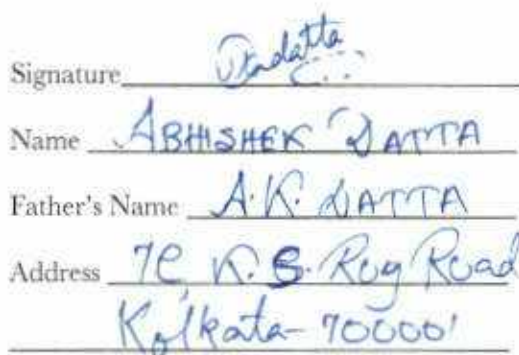 Signature
Name ABHISHEK DATTA
Father's Name A.K. DATTA
Address 7C K.S. Roy Road
Kolkata-700001